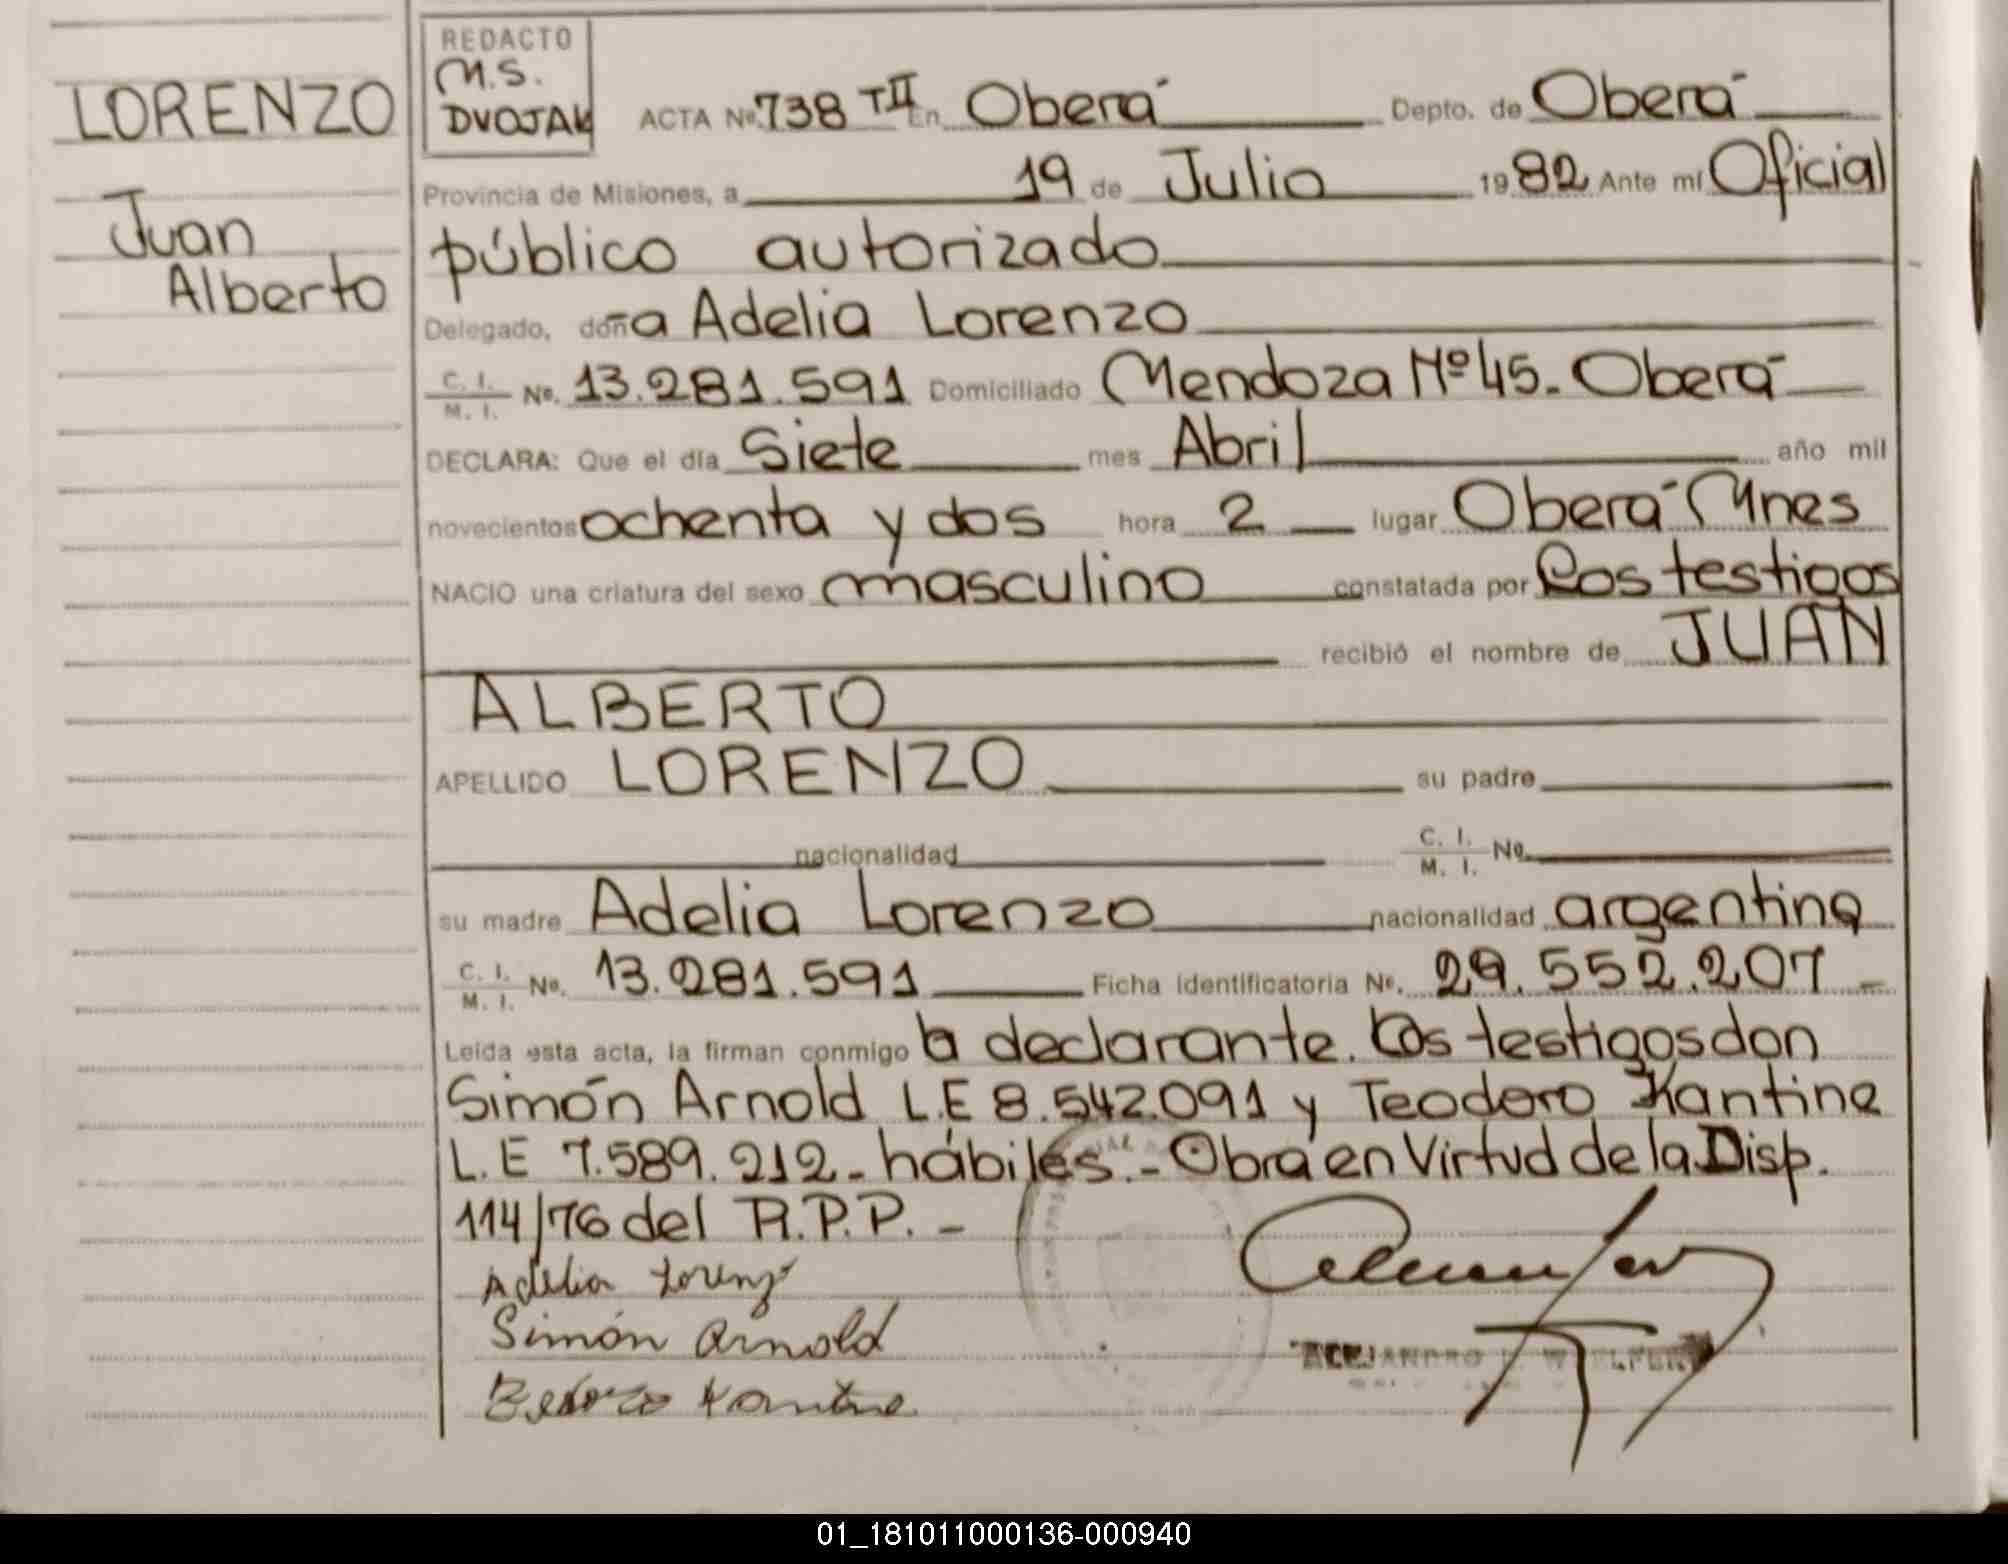 LORENZO
Juan
Alberto
REDACTO
M.S.
DVOJAK
ACTA Nº 738 TII En Oberá Depto. de Oberá
Provincia de Misiones, a 19 de Julio 1982 Ante mí Oficial
público autorizado
Delegado, doña Adelia Lorenzo
C. I. / M. I. Nº. 13.281.591 Domiciliado Mendoza Nº 45.- Oberá
DECLARA: Que el día Siete mes Abril año mil
novecientos ochenta y dos hora 2 lugar Oberá Mnes
NACIO una criatura del sexo masculino constatada por Los testigos
recibió el nombre de JUAN
ALBERTO
APELLIDO LORENZO su padre
nacionalidad C. I. / M. I. Nº
su madre Adelia Lorenzo nacionalidad argentina
C. I. / M. I. Nº. 13.281.591 Ficha identificatoria Nº. 29.552.207 -
Leída esta acta, la firman conmigo la declarante. Los testigos don
Simón Arnold L.E 8.542.091 y Teodoro Kantine
L.E 7.589.212- hábiles.- Obra en Virtud de la Disp.
114/76 del R.P.P. -
Adelia Lorenzo
Simón Arnold
Kantine
ALEJANDRO
01_181011000136-000940